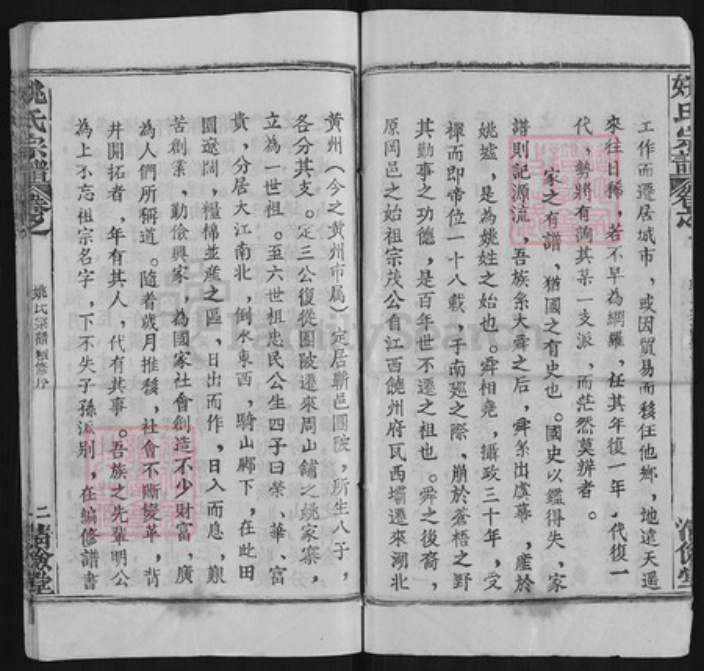 姚氏宗譜
卷之
清儉堂
工作而遷居城市，或因貿易而移住他鄉，地遠天遥
來往日稀，若不早為網羅，任其年復一年，代復一
代，勢將有詢其某一支派，而茫然莫辨者。
家之有譜，猶國之有史也。國史以鑑得失，家
譜則記源流，吾族系大舜之后，舜系出虞幕，產於
姚墟，是為姚姓之始也。舜相堯，攝政三十年，受
禪而即帝位一十八載，于南廵之際，崩於蒼梧之野
其勤事之功德，是百年世不遷之祖也。舜之後裔，
原岡邑之始祖宗茂公自江西饒州府瓦西壩遷來湖北
黄州（今之黄州市属）定居蘄邑團陂，所生八子，
各分其支。定三公復從團陂遷來周山鋪之姚家寨，
立為一世祖。至六世祖忠民公生四子曰榮、華、富
貴，分居大江南北，倒水東西，騎山脚下，在此田
園遼闊，糧棉並産之區，日出而作，日入而息，艱
苦創業，勤儉興家，為國家社會創造不少財富，廣
為人們所稱道。隨着歲月推移，社會不斷變革，背
井開拓者，年有其人，代有其事。吾族之先輩明公
為上不忘祖宗名字，下不失子孫派别，在編修譜書
姚氏宗譜
卷之
姚氏宗譜續修序
二
清儉堂